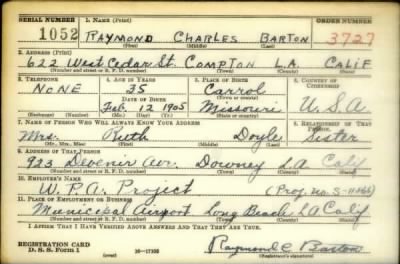 SERIAL NUMBER 1. NAME (Print) ORDER NUMBER
1052 RAYMOND CHARLES BARTON 3727
(First) (Middle) (Last)
2. ADDRESS (Print)
622 West Cedar St. COMPTON L.A. CALIF
(Number and street or R. F. D. number) (Town) (County) (State)
3. TELEPHONE 4. AGE IN YEARS 5. PLACE OF BIRTH 6. COUNTRY OF CITIZENSHIP
NONE 35 Carrol
DATE OF BIRTH (Town or county)
Feb. 12 1905 Missouri U.S.A
(Exchange) (Number) (Mo.) (Day) (Yr.) (State or country)
7. NAME OF PERSON WHO WILL ALWAYS KNOW YOUR ADDRESS 8. RELATIONSHIP OF THAT PERSON
Mrs. Ruth Doyle Sister
(Mr., Mrs., Miss) (First) (Middle) (Last)
9. ADDRESS OF THAT PERSON
923 Ave. Downey LA Calif
(Number and street or R. F. D. number) (Town) (County) (State)
10. EMPLOYER'S NAME
W.P.A. Project (Proj. no. S-11066)
11. PLACE OF EMPLOYMENT OR BUSINESS
Municipal Airport Long Beach LA Calif
(Number and street or R. F. D. number) (Town) (County) (State)
I AFFIRM THAT I HAVE VERIFIED ABOVE ANSWERS AND THAT THEY ARE TRUE.
REGISTRATION CARD
D. S. S. Form 1 (over) 16-17105 Raymond C Barton
(Registrant's signature)